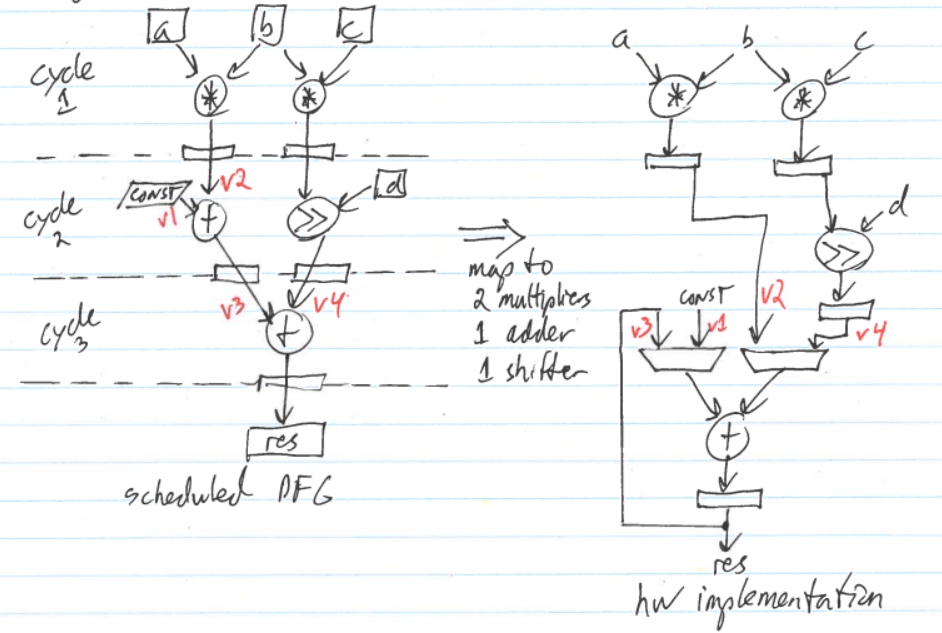 a b c
cycle
1
* *
v2
CONST
v1
d
cycle
2
+ >>
v3 v4
cycle
3
+
res
scheduled DFG
map to
2 multipliers
1 adder
1 shifter
a b c
* *
d
>>
v3 CONST v1 v2 v4
+
res
hw implementation